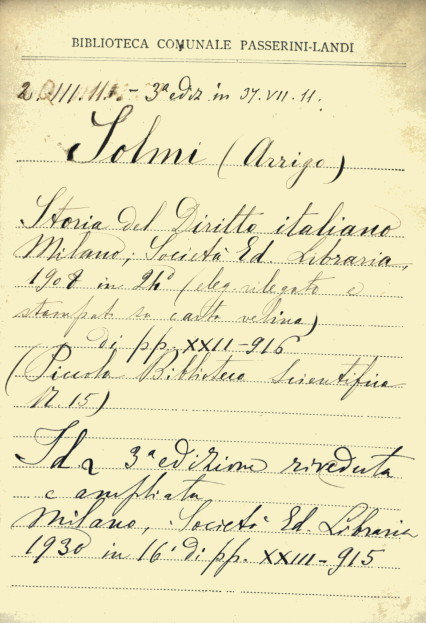 BIBLIOTECA COMUNALE PASSERINI-LANDI
2.  III.11. - 3ª ediz in 37.VII.11.
Solmi (Arrigo)
Storia del Diritto italiano
Milano, Società Ed. Libraria,
1908 in 24º (eleg. rilegato e
stampato su carta velina)
di pp. XXII-916
(Piccola Biblioteca Scientifica
N. 15)
Id 3ª edizione riveduta
e ampliata
Milano, Società Ed. Libraria
1930 in 16º di pp. XXIII-915